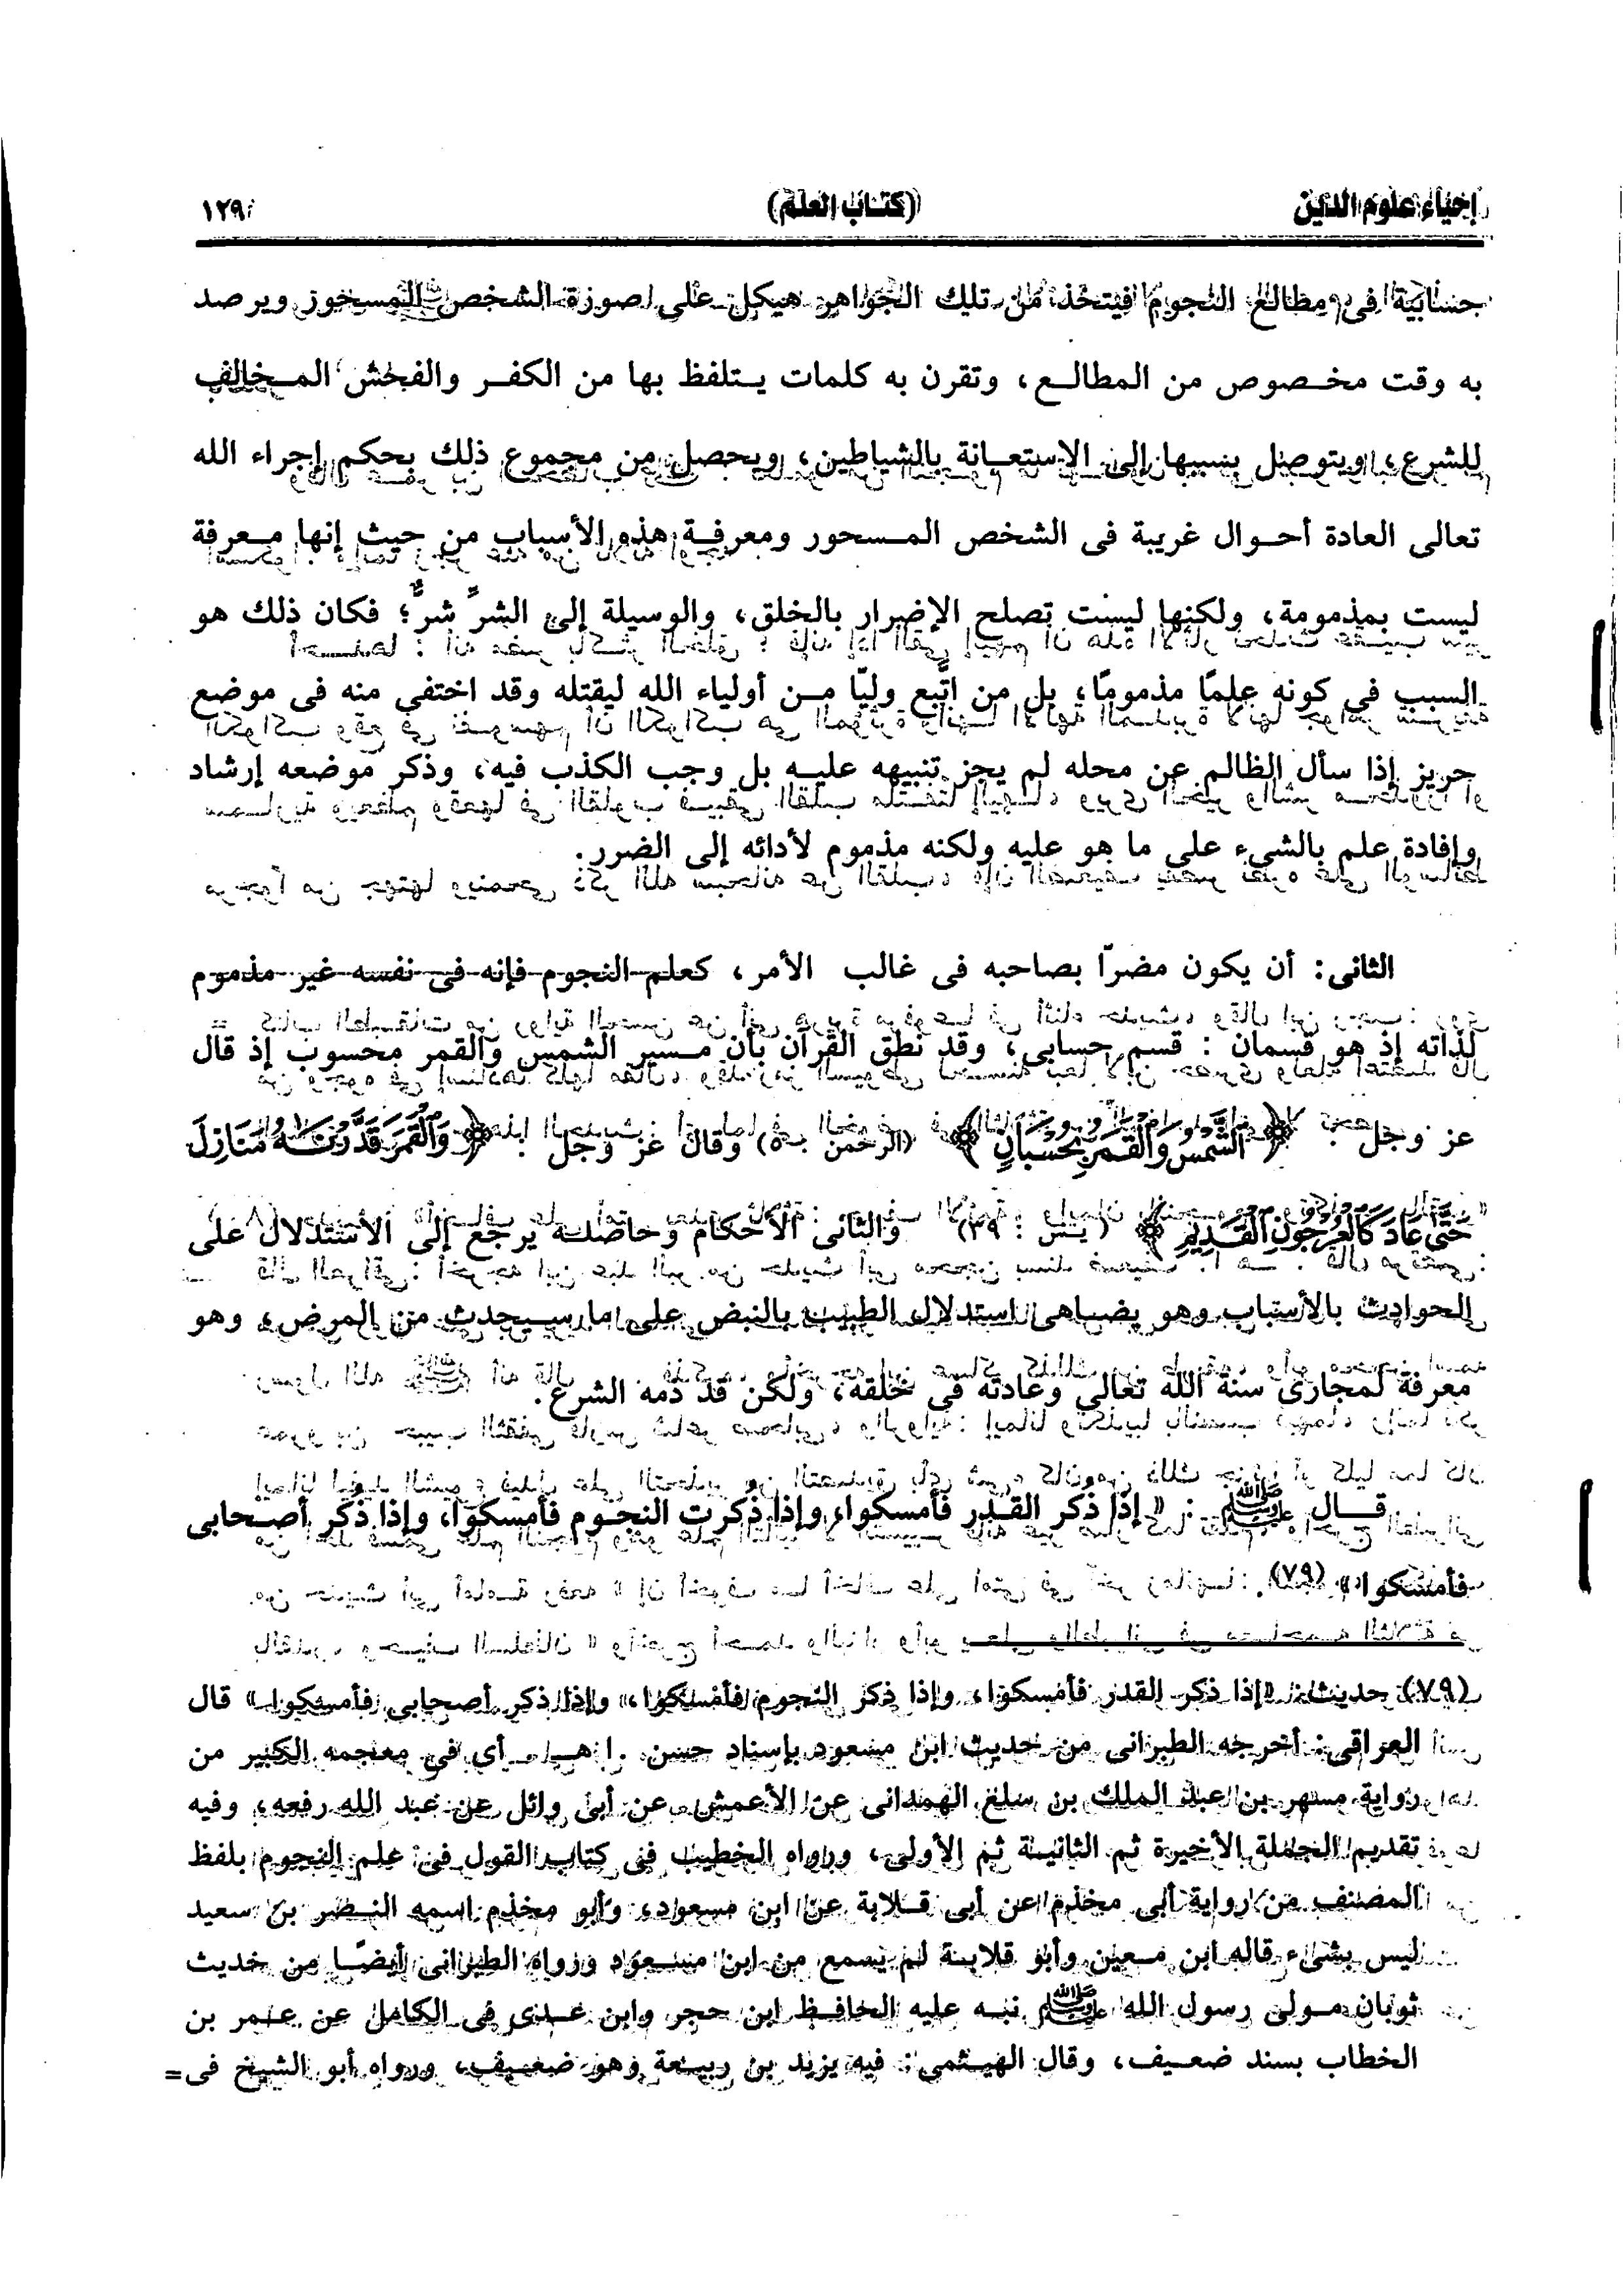 إحياء علوم الدين
(كتاب العلم)
١٢٩
حسابية فى مطالع النجوم فيتخذ من تلك الجواهر هيكل على صورة الشخص المسحور ويرصد
به وقت مخصوص من المطالع، وتقرن به كلمات يتلفظ بها من الكفر والفحش المخالف
للشرع، ويتوصل بسببها إلى الاستعانة بالشياطين، ويحصل من مجموع ذلك بحكم إجراء الله
تعالى العادة أحوال غريبة فى الشخص المسحور ومعرفة هذه الأسباب من حيث إنها معرفة
ليست بمذمومة، ولكنها ليست تصلح الإضرار بالخلق، والوسيلة إلى الشرِّ شرٌّ؛ فكان ذلك هو
السبب فى كونه علمًا مذمومًا، بل من اتَّبع وليّا من أولياء الله ليقتله وقد اختفى منه فى موضع
حريز إذا سأل الظالم عن محله لم يجز تنبيهه عليه بل وجب الكذب فيه، وذكر موضعه إرشاد
وإفادة علم بالشىء على ما هو عليه ولكنه مذموم لأدائه إلى الضرر.
الثانى: أن يكون مضرّا بصاحبه فى غالب الأمر، كعلم النجوم فإنه فى نفسه غير مذموم
لذاته إذ هو قسمان : قسم حسابى، وقد نطق القرآن بأن مسير الشمس والقمر محسوب إذ قال
عز وجل: ﴿ الشَّمْسُ وَالْقَمَرُ بِحُسْبَانٍ ﴾ (الرحمن : ٥) وقال عز وجل : ﴿ وَالْقَمَرَ قَدَّرْنَاهُ مَنَازِلَ
حَتَّىٰ عَادَ كَالْعُرْجُونِ الْقَدِيمِ ﴾ (يس : ٣٩) والثانى الأحكام وحاصله يرجع إلى الاستدلال على
الحوادث بالأسباب وهو يضاهى استدلال الطبيب بالنبض على ما سيحدث من المرض، وهو
معرفة لمجارى سنة الله تعالى وعادته فى خلقه، ولكن قد ذمه الشرع.
قال ﷺ : « إذا ذكر القدر فأمسكوا، وإذا ذُكرت النجوم فأمسكوا، وإذا ذُكر أصحابى
فأمسكوا » (٧٩).
(٧٩) حديث: «إذا ذكر القدر فأمسكوا، وإذا ذكر النجوم فأمسكوا، وإذا ذكر أصحابى فأمسكوا» قال
العراقى: أخرجه الطبرانى من حديث ابن مسعود بإسناد حسن. اهـ. أى فى معجمه الكبير من
رواية مسهر بن عبد الملك بن سلع الهمدانى عن الأعمش عن أبى وائل عن عبد الله رفعه، وفيه
تقديم الجملة الأخيرة ثم الثانية ثم الأولى، ورواه الخطيب فى كتاب القول فى علم النجوم بلفظ
المصنف من رواية أبى مخذم عن أبى قلابة عن ابن مسعود، وأبو مخذم اسمه النضر بن سعيد
ليس بشىء قاله ابن معين وأبو قلابة لم يسمع من ابن مسعود ورواه الطبرانى أيضًا من حديث
ثوبان مولى رسول الله ﷺ نبه عليه الحافظ ابن حجر وابن عدى فى الكامل عن عمر بن
الخطاب بسند ضعيف، وقال الهيثمى: فيه يزيد بن ربيعة وهو ضعيف، ورواه أبو الشيخ فى =